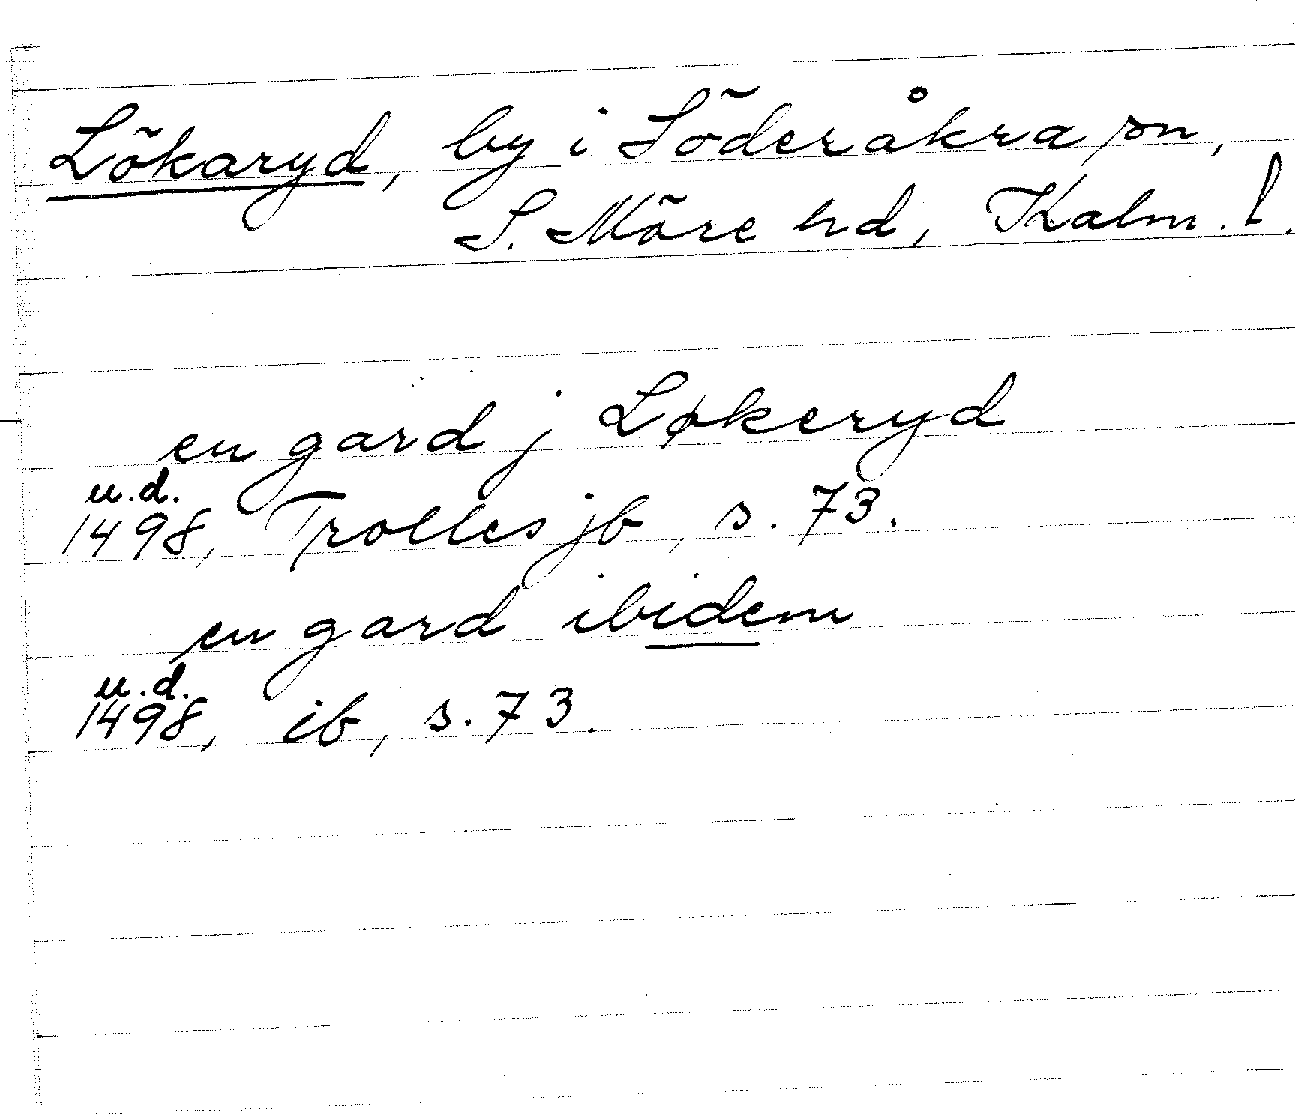 Lökaryd, by i Söderåkra sn,
S. Möre hd, Kalm. l.
en gard j Løkeryd
u.d.
1498, Trolles jb, s. 73.
en gard ibidem
u.d.
1498, ib, s. 73.